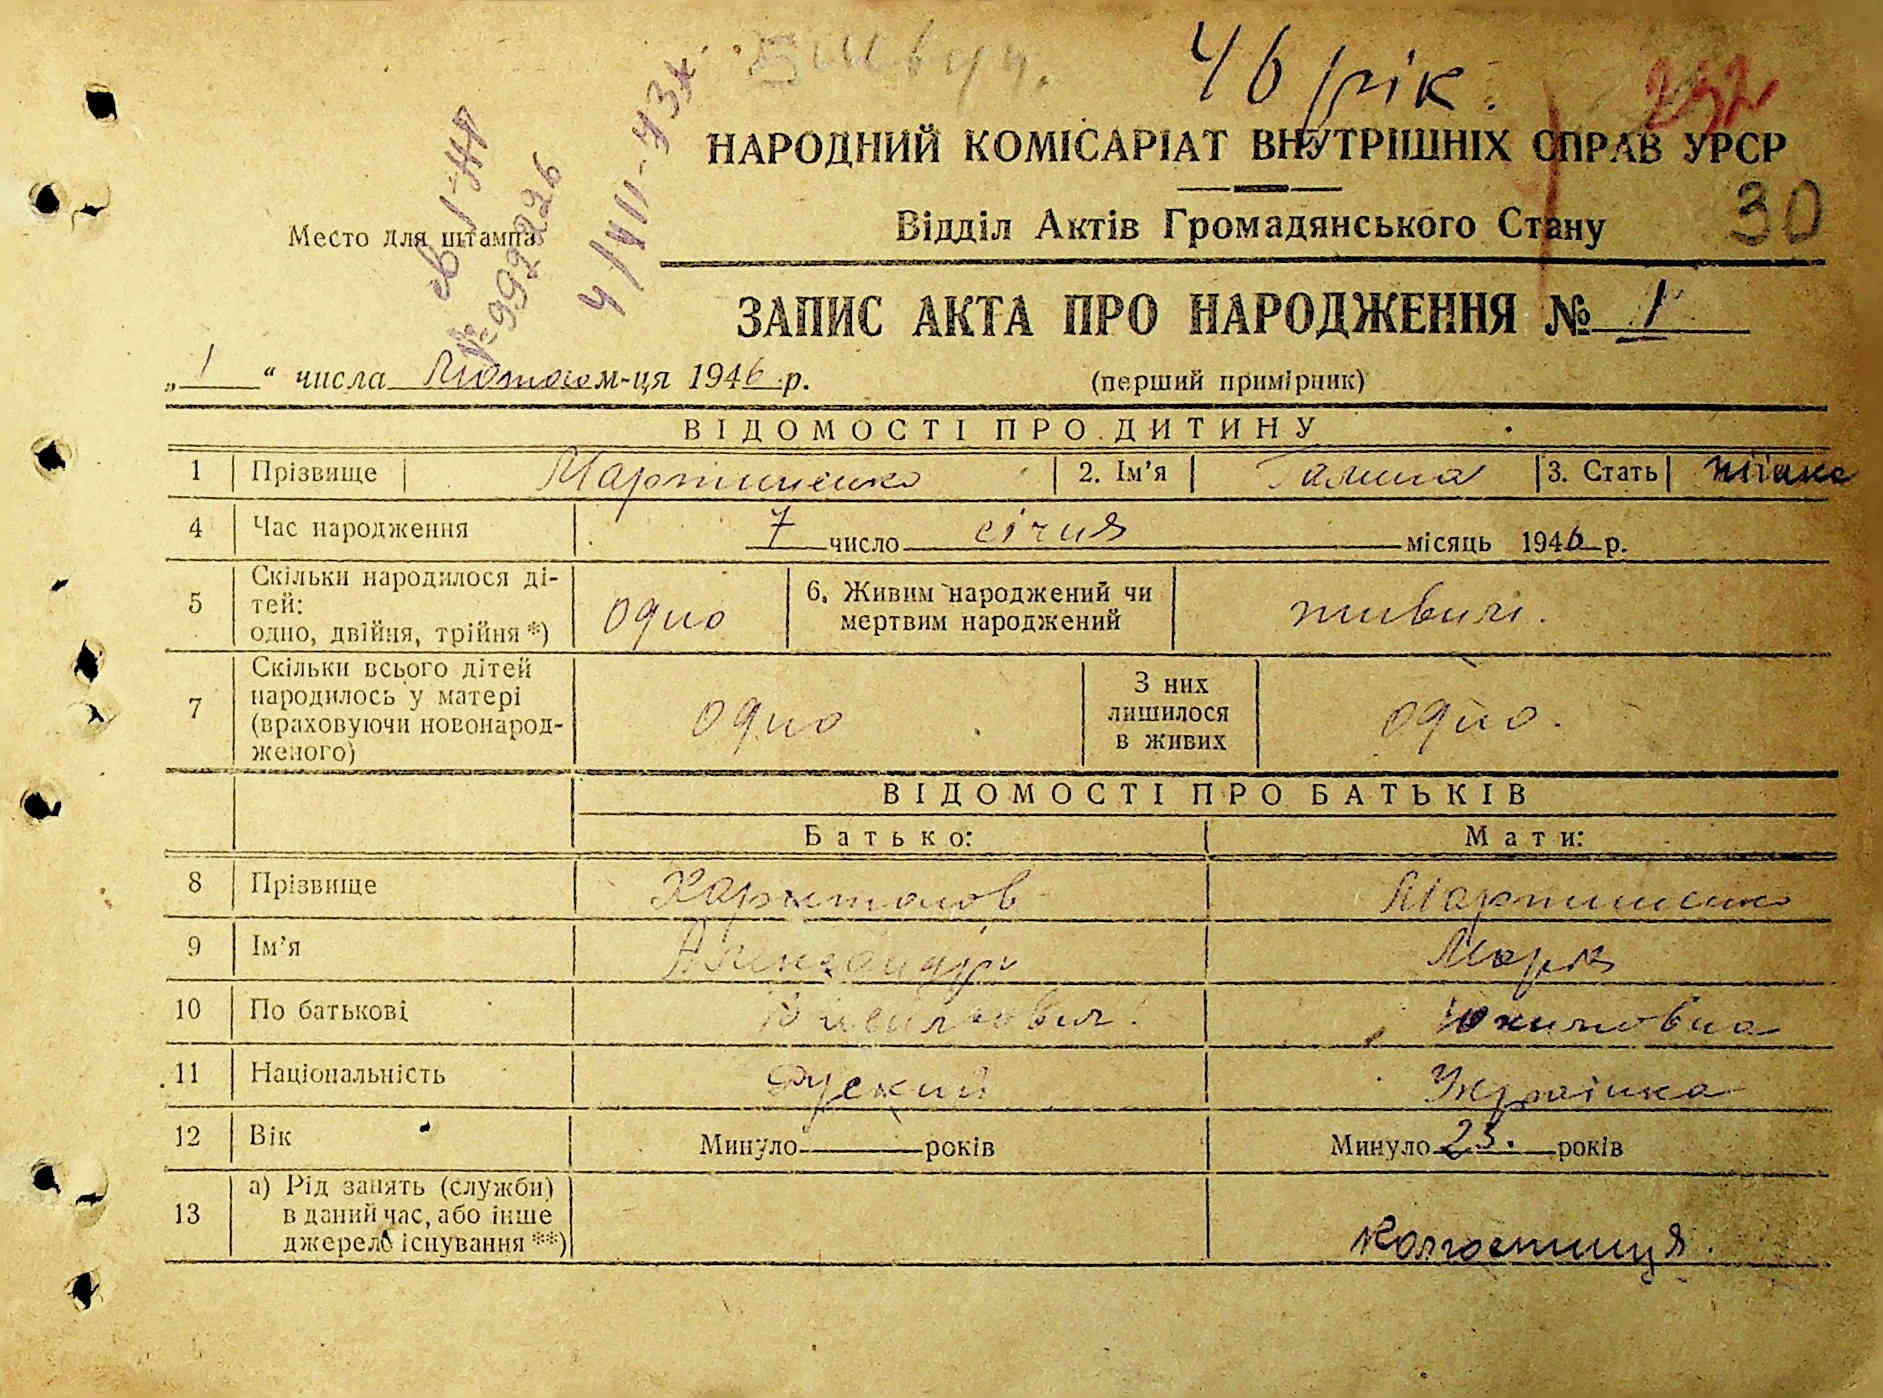 46 рік.
232
НАРОДНИЙ КОМІСАРІАТ ВНУТРІШНІХ СПРАВ УРСР
30
Место для штампа
Відділ Актів Громадянського Стану
№ 999226
ЗАПИС АКТА ПРО НАРОДЖЕННЯ № 1
„ 1 “ числа Лютого м-ця 1946 р.
(перший примірник)
ВІДОМОСТІ ПРО ДИТИНУ
1 Прізвище Мартиненко 2. Ім'я Галина 3. Стать
4 Час народження 7 число січня місяць 1946 р.
5 Скільки народилося ді-
тей:
одно, двійня, трійня *) одно 6. Живим народжений чи
мертвим народжений живим.
7 Скільки всього дітей
народилось у матері
(враховуючи новонарод-
женого) одно З них
лишилося
в живих одно.
ВІДОМОСТІ ПРО БАТЬКІВ
Батько: Мати:
8 Прізвище Харитонов Мартиненко
9 Ім'я Александр Марія
10 По батькові
11 Національність Руский Українка
12 Вік Минуло років Минуло 23. років
13 а) Рід занять (служби)
в даний час, або інше
джерело існування **) Колгоспниця.